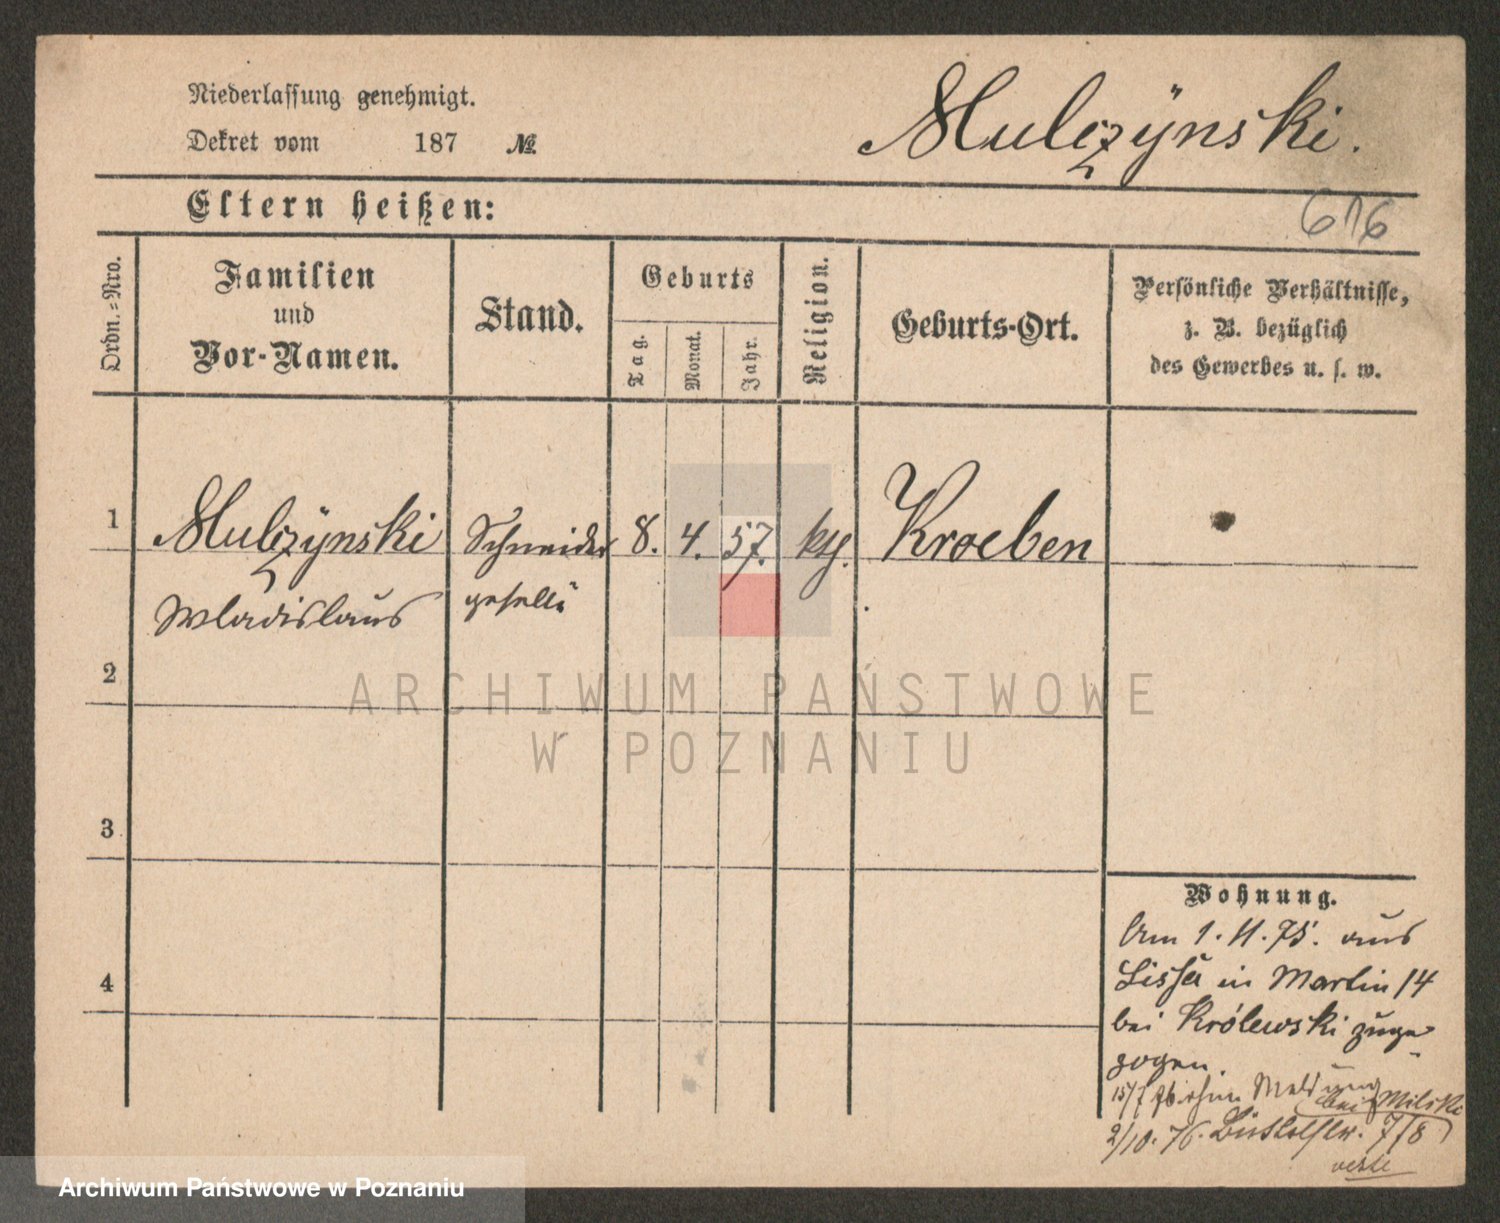 Niederlassung genehmigt.
Dekret vom 187 №
Mulczÿnski.
616
Eltern heißen:
Ordn.-Nro.
Familien
und
Vor-Namen.
Stand.
Geburts
Tag.
Monat.
Jahr.
Religion.
Geburts-Ort.
Persönliche Verhältnisse,
z. B. bezüglich
des Gewerbes u. s. w.
1 Mulczÿnski Schneider 8. 4. 57. Kroeben
Wladislaus geselle
2
3
4
Wohnung.
Am 1. 11. 75. aus
Lissa in Martin 14
bei Królewski zuge-
zogen.
ohne Meldung
bei Milski
2/10. 76. 7/8
ARCHIWUM PAŃSTWOWE
W POZNANIU
Archiwum Państwowe w Poznaniu